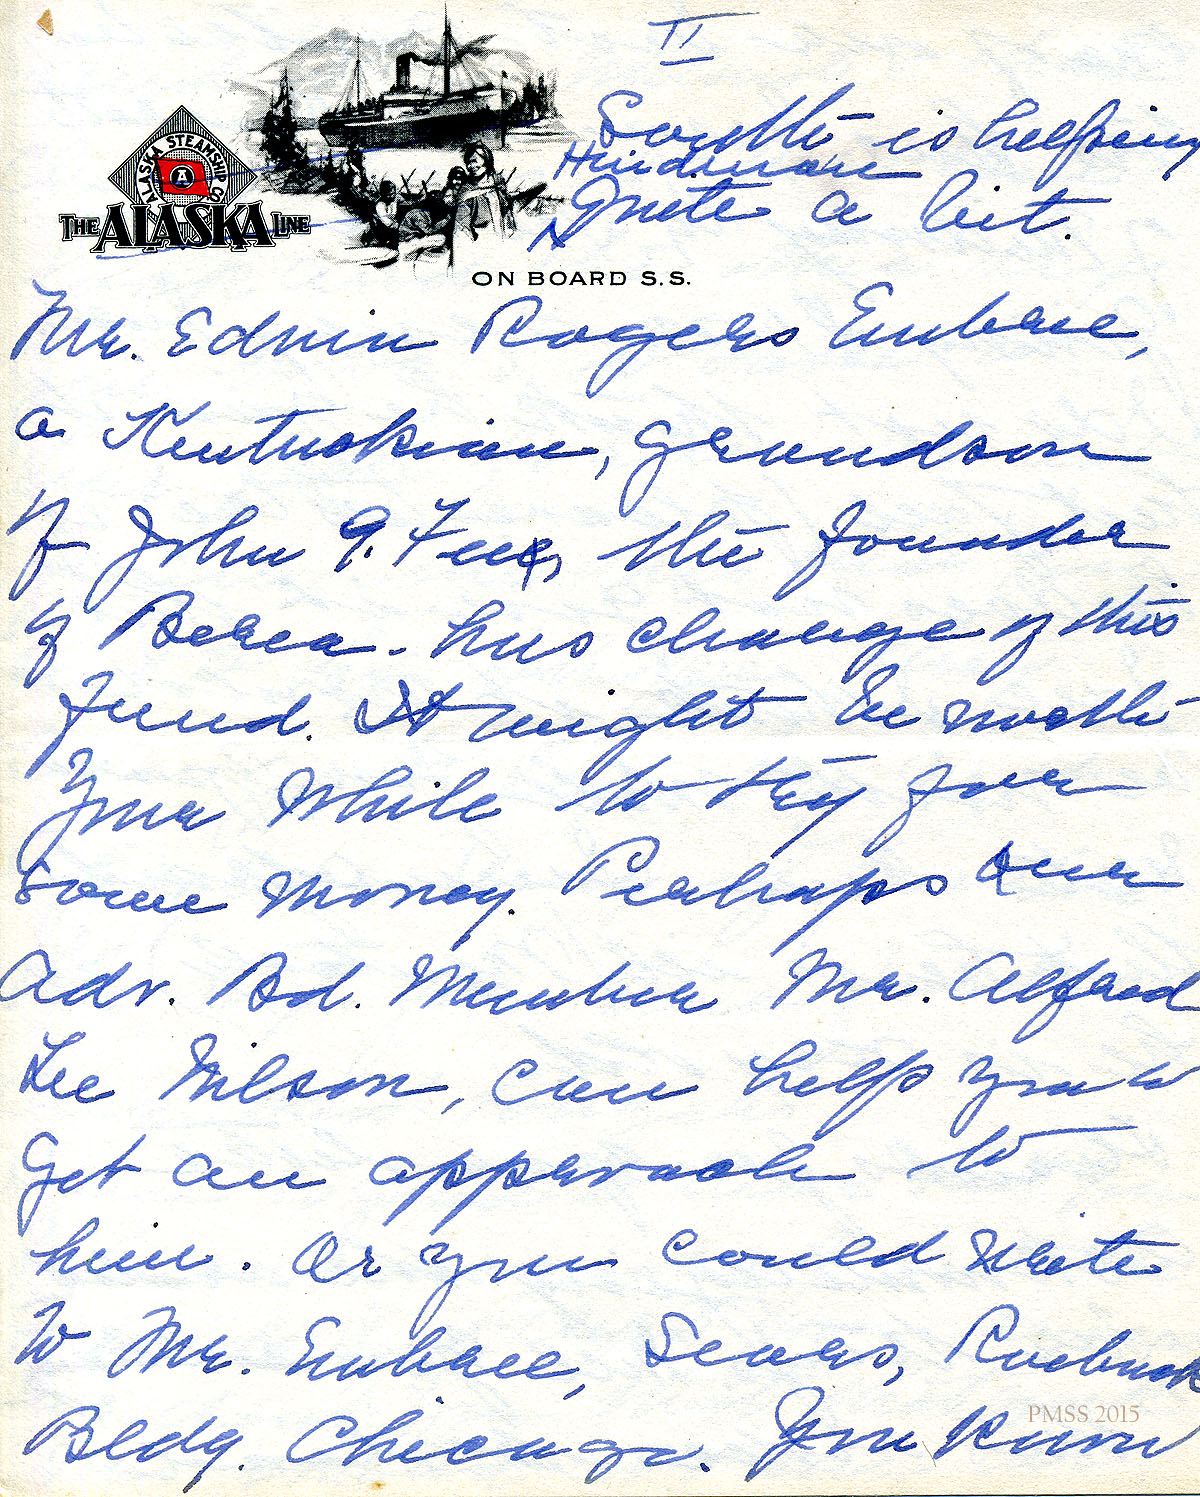 II
ALASKA STEAMSHIP CO.
A
THE ALASKA LINE
ON BOARD S.S.
South is helping
Hindman
quite a bit.
Mr. Edwin Rogers Embree,
a Kentuckian, grandson
of John G. Fee, the founder
of Berea. has charge of this
fund. It might be worth
your while to try for
some money. Perhaps our
Adv. Bd. Member Mr. Alfred
Lee Wilson, can help you to
get an approach to
him. Or you could write
to Mr. Embree, Sears, Roebuck
Bldg. Chicago. You know
PMSS 2015